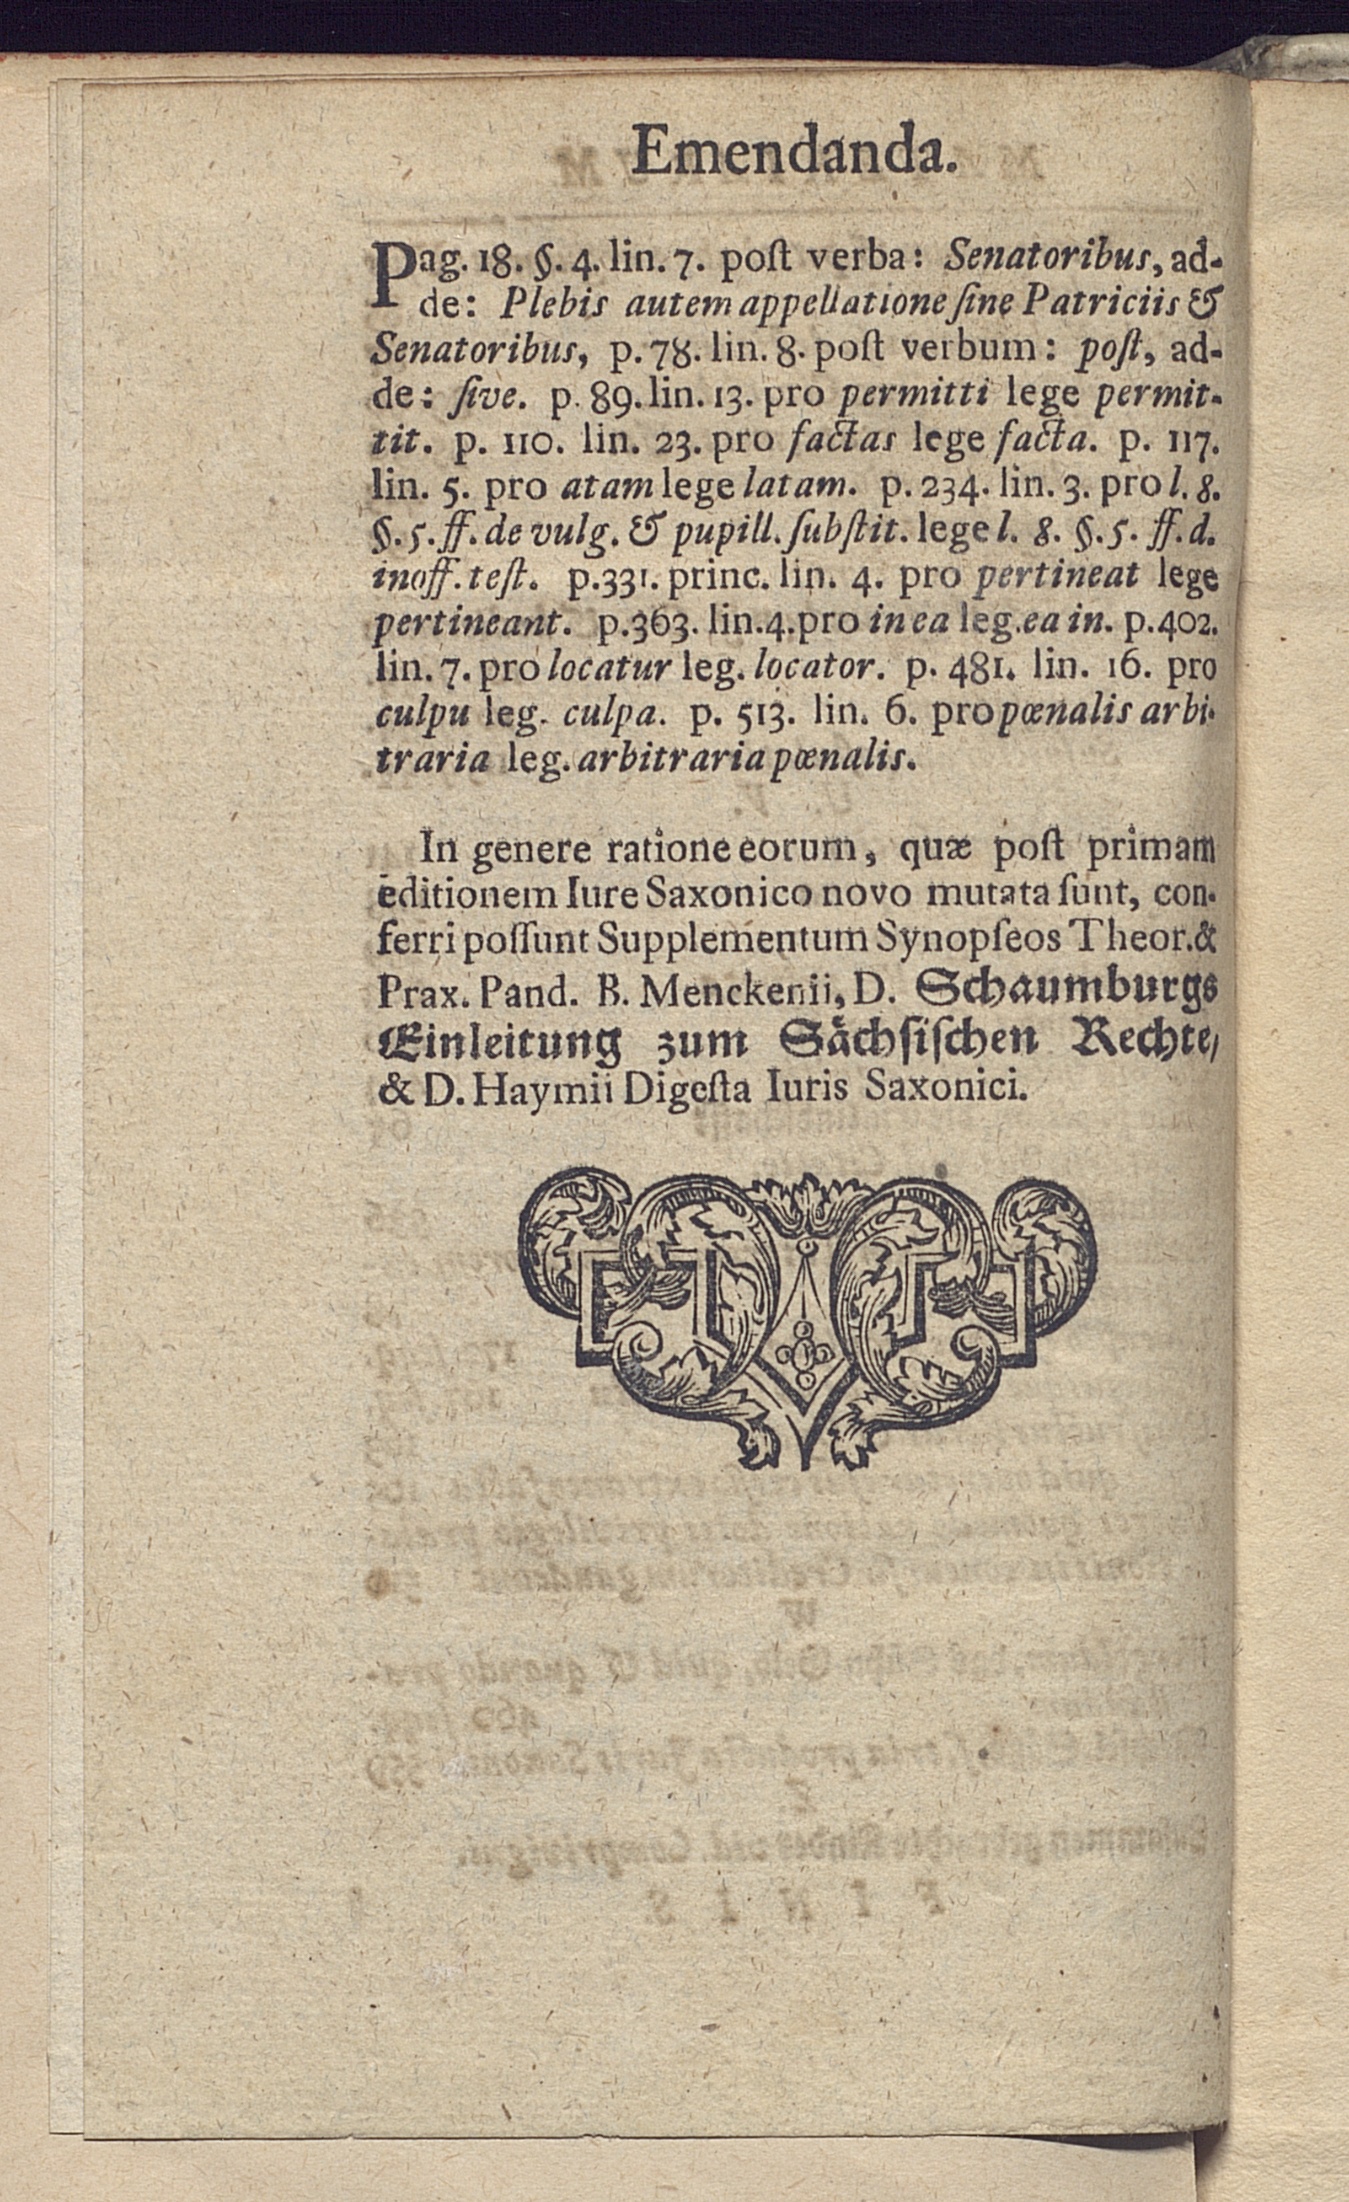 Emendanda.
Pag. 18. §. 4. lin. 7. poſt verba: Senatoribus, ad-
de: Plebis autem appellatione ſine Patriciis &
Senatoribus, p. 78. lin. 8. poſt verbum: poſt, ad-
de: ſive. p. 89. lin. 13. pro permitti lege permit-
tit. p. 110. lin. 23. pro factas lege facta. p. 117.
lin. 5. pro atam lege latam. p. 234. lin. 3. pro l. 8.
§. 5. ff. de vulg. & pupill. ſubſtit. lege l. 8. §. 5. ff. d.
inoff. teſt. p. 331. princ. lin. 4. pro pertineat lege
pertineant. p. 363. lin. 4. pro in ea leg. ea in. p. 402.
lin. 7. pro locatur leg. locator. p. 481. lin. 16. pro
culpu leg. culpa. p. 513. lin. 6. pro pœnalis arbi-
traria leg. arbitraria pœnalis.
In genere ratione eorum, quæ poſt primam
editionem Iure Saxonico novo mutata ſunt, con-
ferri poſſunt Supplementum Synopſeos Theor. &
Prax. Pand. B. Menckenii, D. Schaumburgs
Einleitung zum Sächſiſchen Rechte,
& D. Haymii Digeſta Iuris Saxonici.